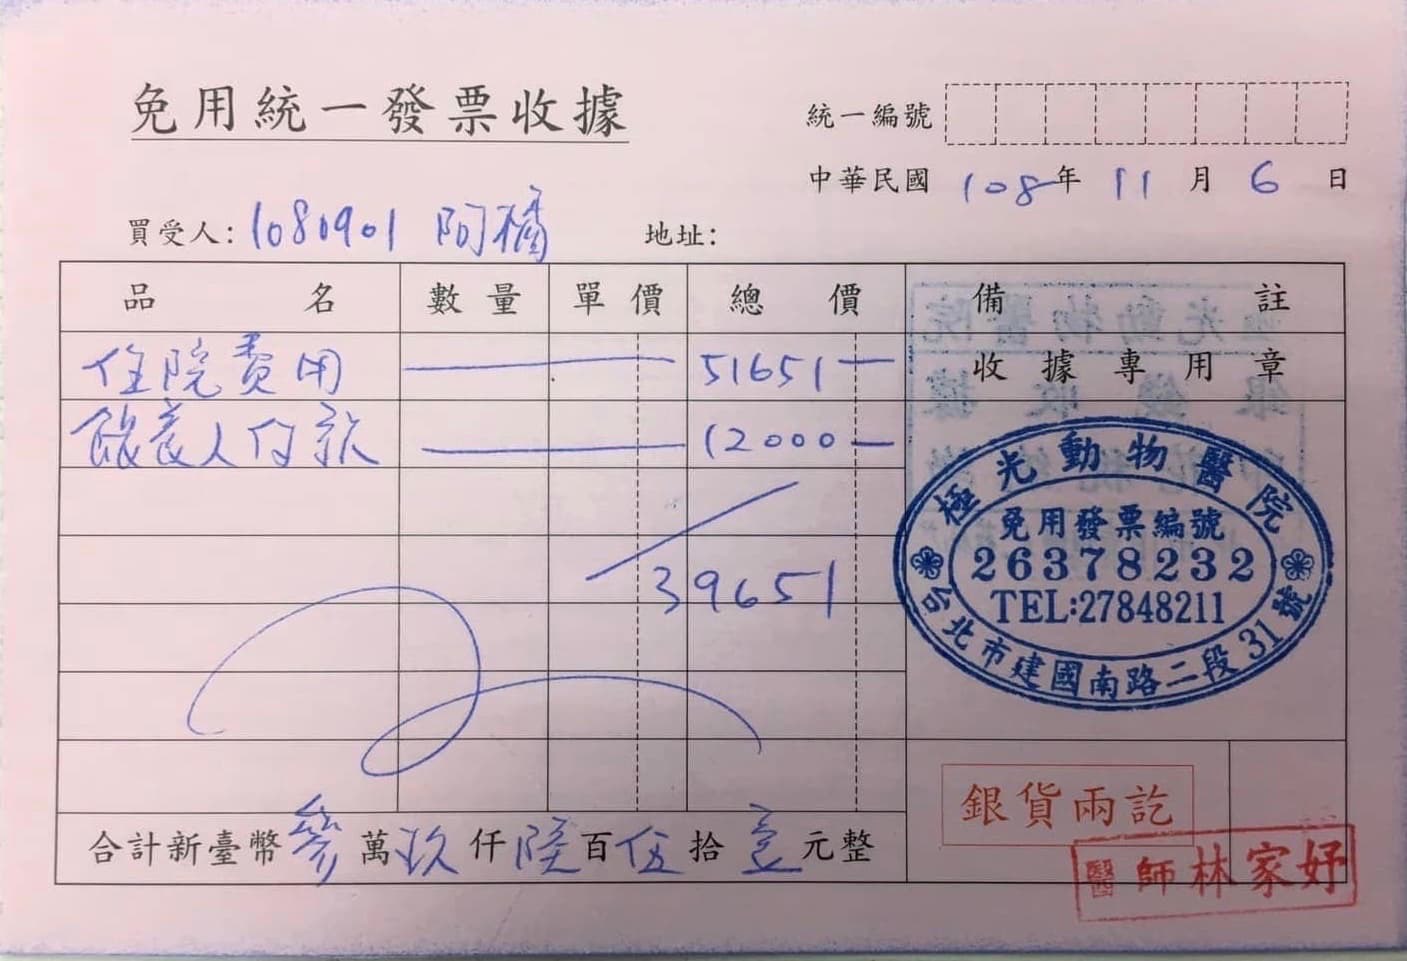 免用統一發票收據
統一編號
中華民國 108年 11月 6日
買受人: 1080901 阿橘 地址:
品名 數量 單價 總價 備註
住院費用 51651 收據專用章
飼養人付款 12000
39651
極光動物醫院
免用發票編號
26378232
TEL:27848211
台北市建國南路二段31號
銀貨兩訖
合計新臺幣參萬玖仟陸百伍拾壹元整
醫師林家妤